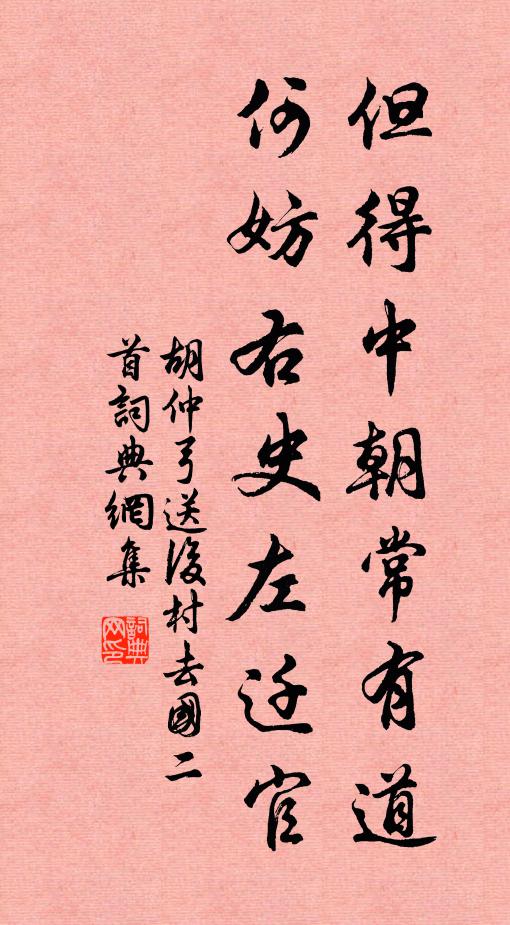 但得中朝常有道
何妨右史左迁官
胡仲弓送後村去國二
首詞典網集
詞典网印